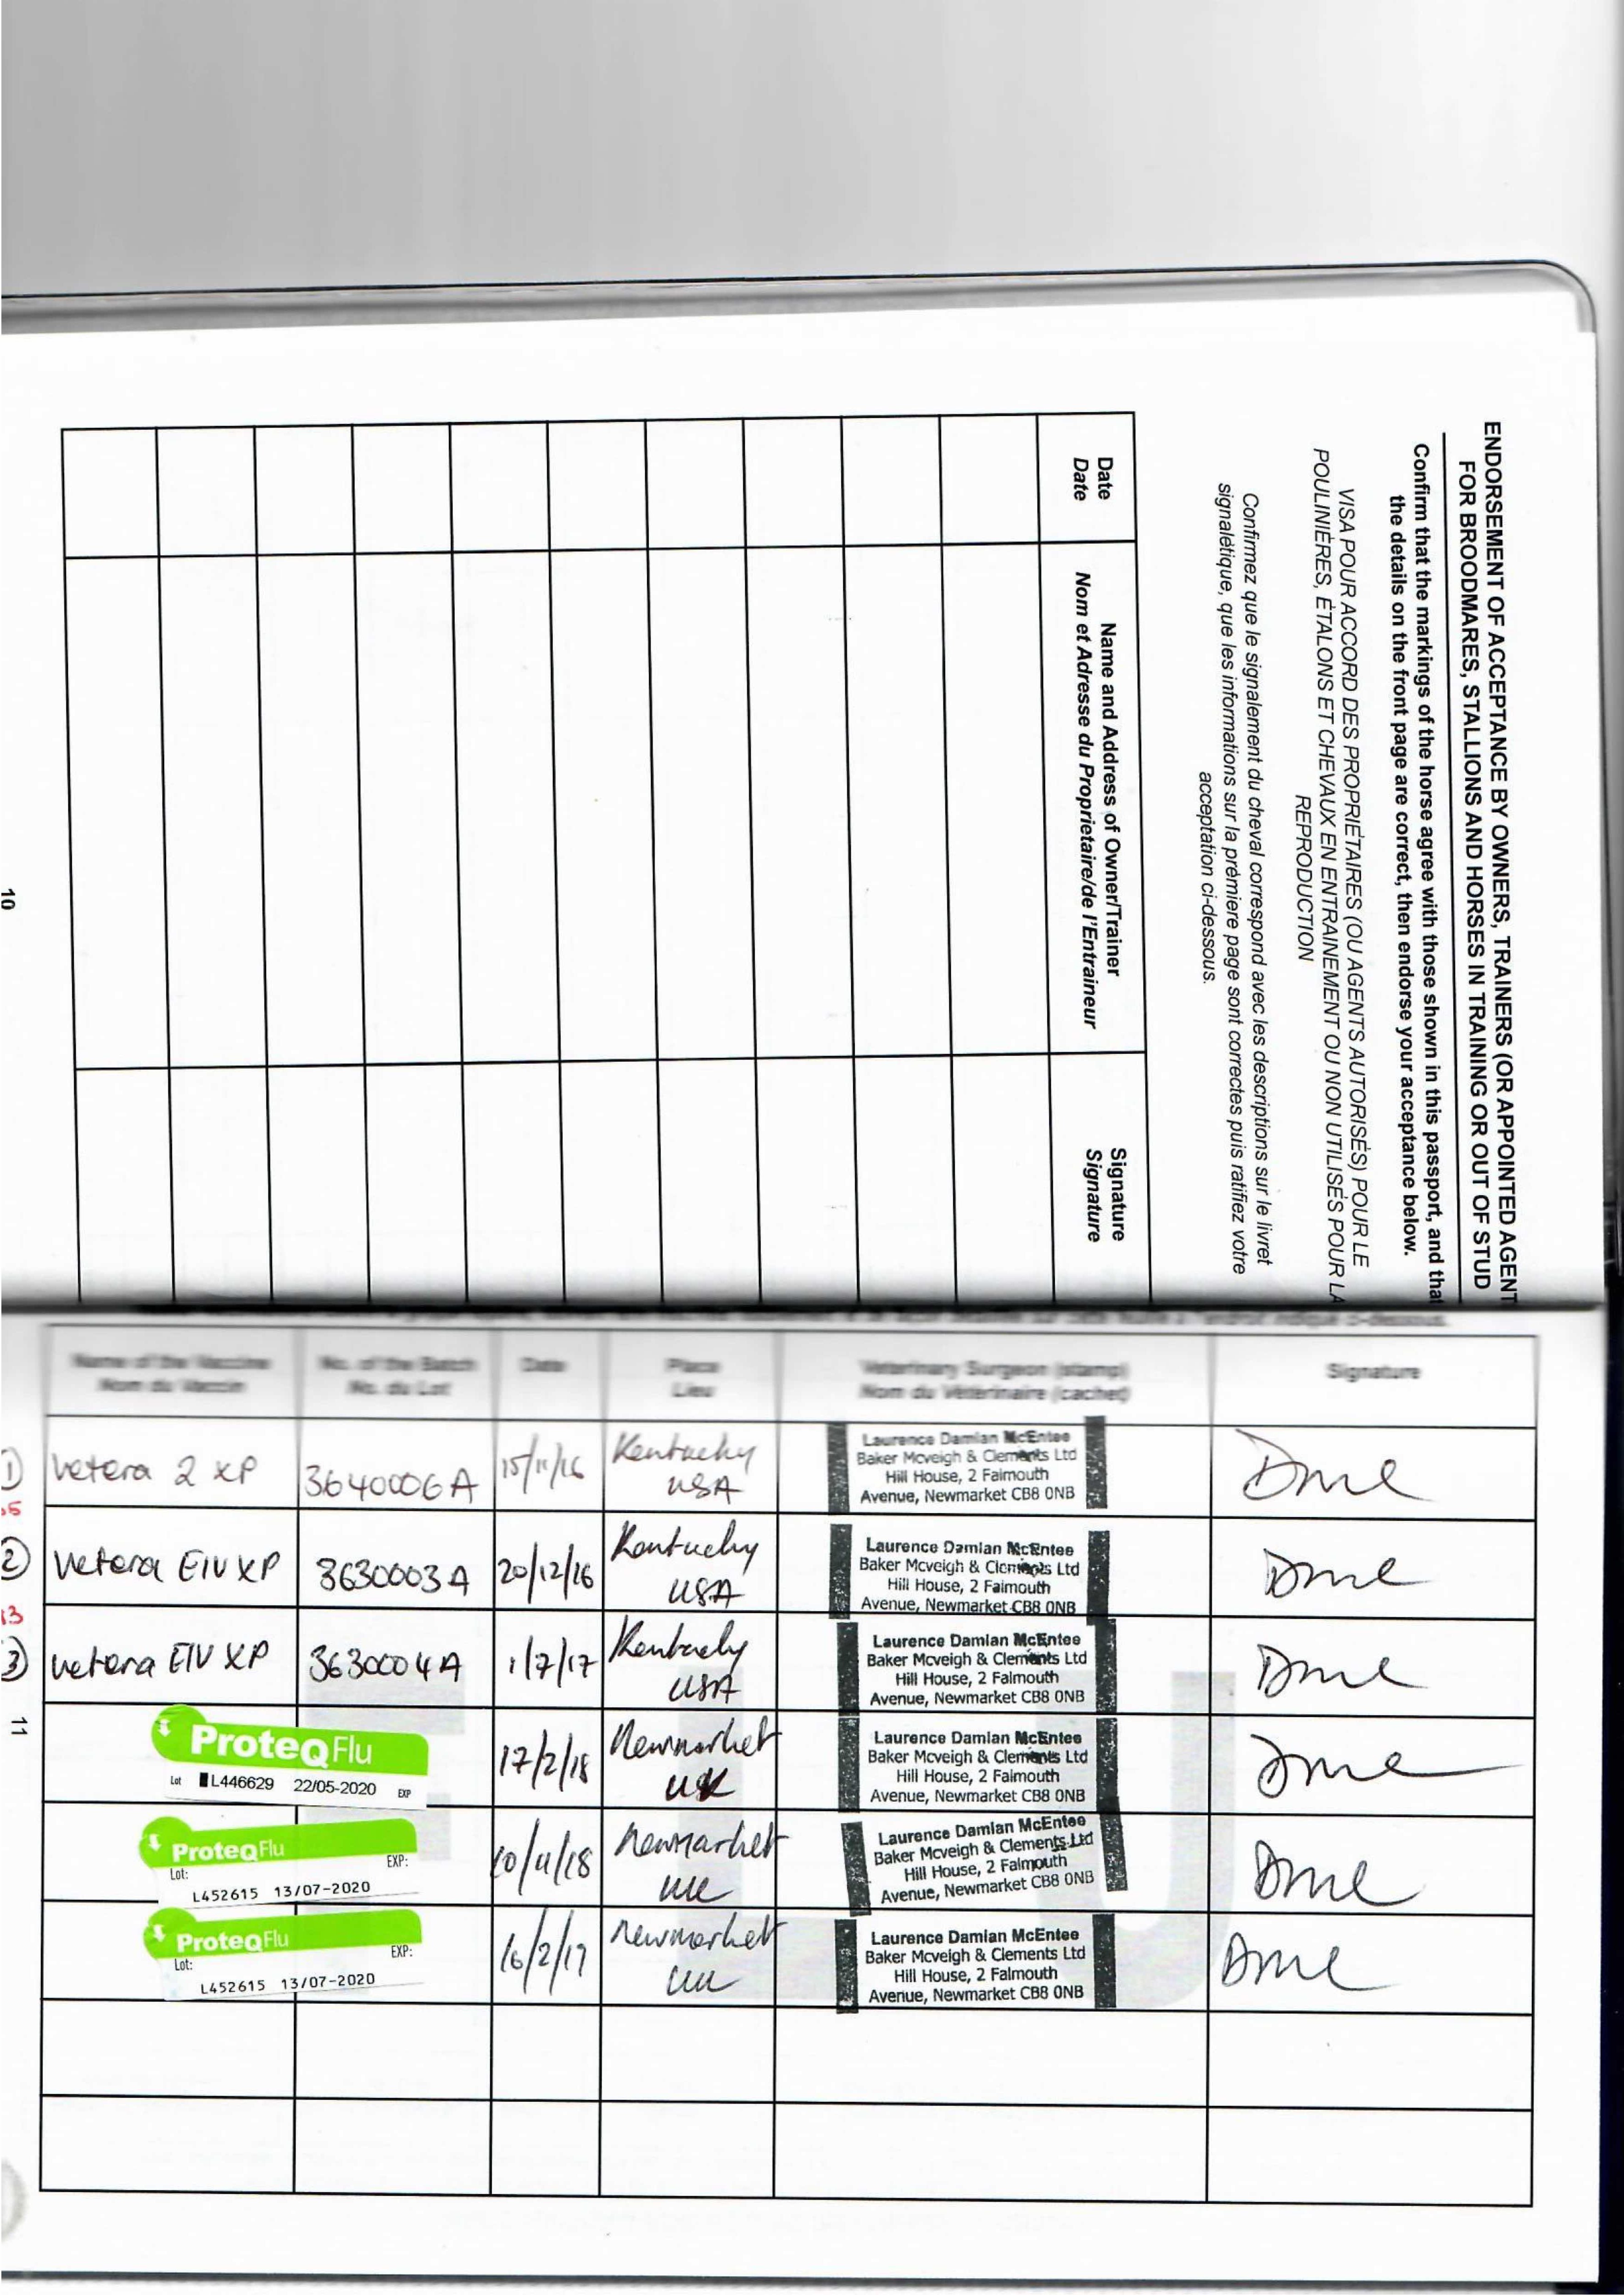 ENDORSEMENT OF ACCEPTANCE BY OWNERS, TRAINERS (OR APPOINTED AGENT
FOR BROODMARES, STALLIONS AND HORSES IN TRAINING OR OUT OF STUD
Confirm that the markings of the horse agree with those shown in this passport, and that
the details on the front page are correct, then endorse your acceptance below.
VISA POUR ACCORD DES PROPRIÉTAIRES (OU AGENTS AUTORISÉS) POUR LE
POULINIÈRES, ÉTALONS ET CHEVAUX EN ENTRAINEMENT OU NON UTILISÉS POUR LA
REPRODUCTION
Confirmez que le signalement du cheval correspond avec les descriptions sur le livret
signalétique, que les informations sur la prèmiere page sont correctes puis ratifiez votre
acceptation ci-dessous.
Date Name and Address of Owner/Trainer Signature
Date Nom et Adresse du Proprietaire/de l'Entraineur Signature
10
Name of the Vaccine No. of the Batch Date Place Veterinary Surgeon (stamp) Signature
Nom du Vaccin No. du Lot Lieu Nom du Vétérinaire (cachet)
1) Vetera 2 XP 3640006A 15/11/16 Kentucky USA
Laurence Damian McEntee
Baker Mcveigh & Clements Ltd
Hill House, 2 Falmouth
Avenue, Newmarket CB8 0NB
Dme
2) Vetera EIV XP 3630003A 20/12/16 Kentucky USA
Laurence Damian McEntee
Baker Mcveigh & Clements Ltd
Hill House, 2 Falmouth
Avenue, Newmarket CB8 0NB
Dme
13
3) Vetera EIV XP 3630004A 1/7/17 Kentucky USA
Laurence Damian McEntee
Baker Mcveigh & Clements Ltd
Hill House, 2 Falmouth
Avenue, Newmarket CB8 0NB
Dme
11
ProteqFlu
Lot L446629 22/05-2020 EXP
17/2/18 Newmarket UK
Laurence Damian McEntee
Baker Mcveigh & Clements Ltd
Hill House, 2 Falmouth
Avenue, Newmarket CB8 0NB
Dme
ProteqFlu
Lot: EXP:
L452615 13/07-2020
Newmarket UK
Laurence Damian McEntee
Baker Mcveigh & Clements Ltd
Hill House, 2 Falmouth
Avenue, Newmarket CB8 0NB
Dme
ProteqFlu
Lot: EXP:
L452615 13/07-2020
16/2/19 Newmarket UK
Laurence Damian McEntee
Baker Mcveigh & Clements Ltd
Hill House, 2 Falmouth
Avenue, Newmarket CB8 0NB
Dme